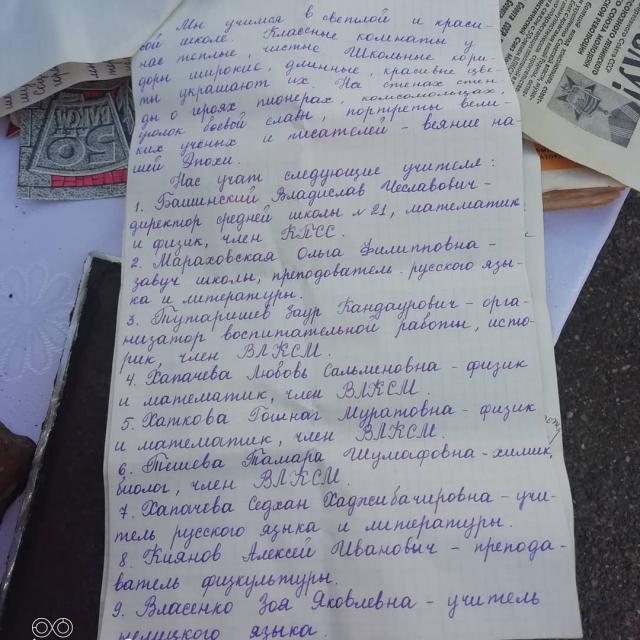 Мы учимся в светлой и краси-
вой школе. Классные комнаты у
нас теплые, чистые. Школьные кори-
доры широкие, длинные, красивые цве-
ты украшают их. На стенах стен-
ды о героях пионерах, комсомольцах,
уголок боевой славы, портреты вели-
ких ученых и писателей - веяние на
шей Эпохи.
Нас учат следующие учителе:
1. Башинский Владислав Чеславович -
директор средней школы №21, математик
и физик, член КПСС.
2. Мараховская Ольга Филипповна -
завуч школы, преподователь русского язы-
ка и литературы.
3. Тутаришев Заур Кандаурович - орга-
низатор воспитательной работы, исто-
рик, член ВЛКСМ.
4. Хапачева Любовь Сальменовна - физик
и математик, член ВЛКСМ.
5. Хаткова Гошнаг Муратовна - физик
и математик, член ВЛКСМ.
6. Тешева Тамара Шумафовна - химик,
биолог, член ВЛКСМ.
7. Хапачева Седхан Хаджибачировна - учи-
тель русского языка и литературы.
8. Киянов Алексей Иванович - препода-
ватель физкультуры.
9. Власенко Зоя Яковлевна - учитель
немецкого языка.
50